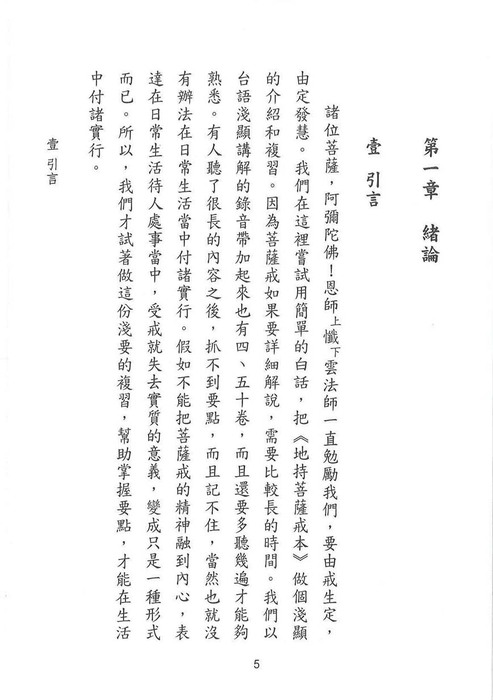 第一章 緒論
壹 引言
諸位菩薩，阿彌陀佛！恩師上懺下雲法師一直勉勵我們，要由戒生定，
由定發慧。我們在這裡嘗試用簡單的白話，把《地持菩薩戒本》做個淺顯
的介紹和複習。因為菩薩戒如果要詳細解說，需要比較長的時間。我們以
台語淺顯講解的錄音帶加起來也有四、五十卷，而且還要多聽幾遍才能夠
熟悉。有人聽了很長的內容之後，抓不到要點，而且記不住，當然也就沒
有辦法在日常生活當中付諸實行。假如不能把菩薩戒的精神融到內心，表
達在日常生活待人處事當中，受戒就失去實質的意義，變成只是一種形式
而已。所以，我們才試著做這份淺要的複習，幫助掌握要點，才能在生活
中付諸實行。
壹 引言
5